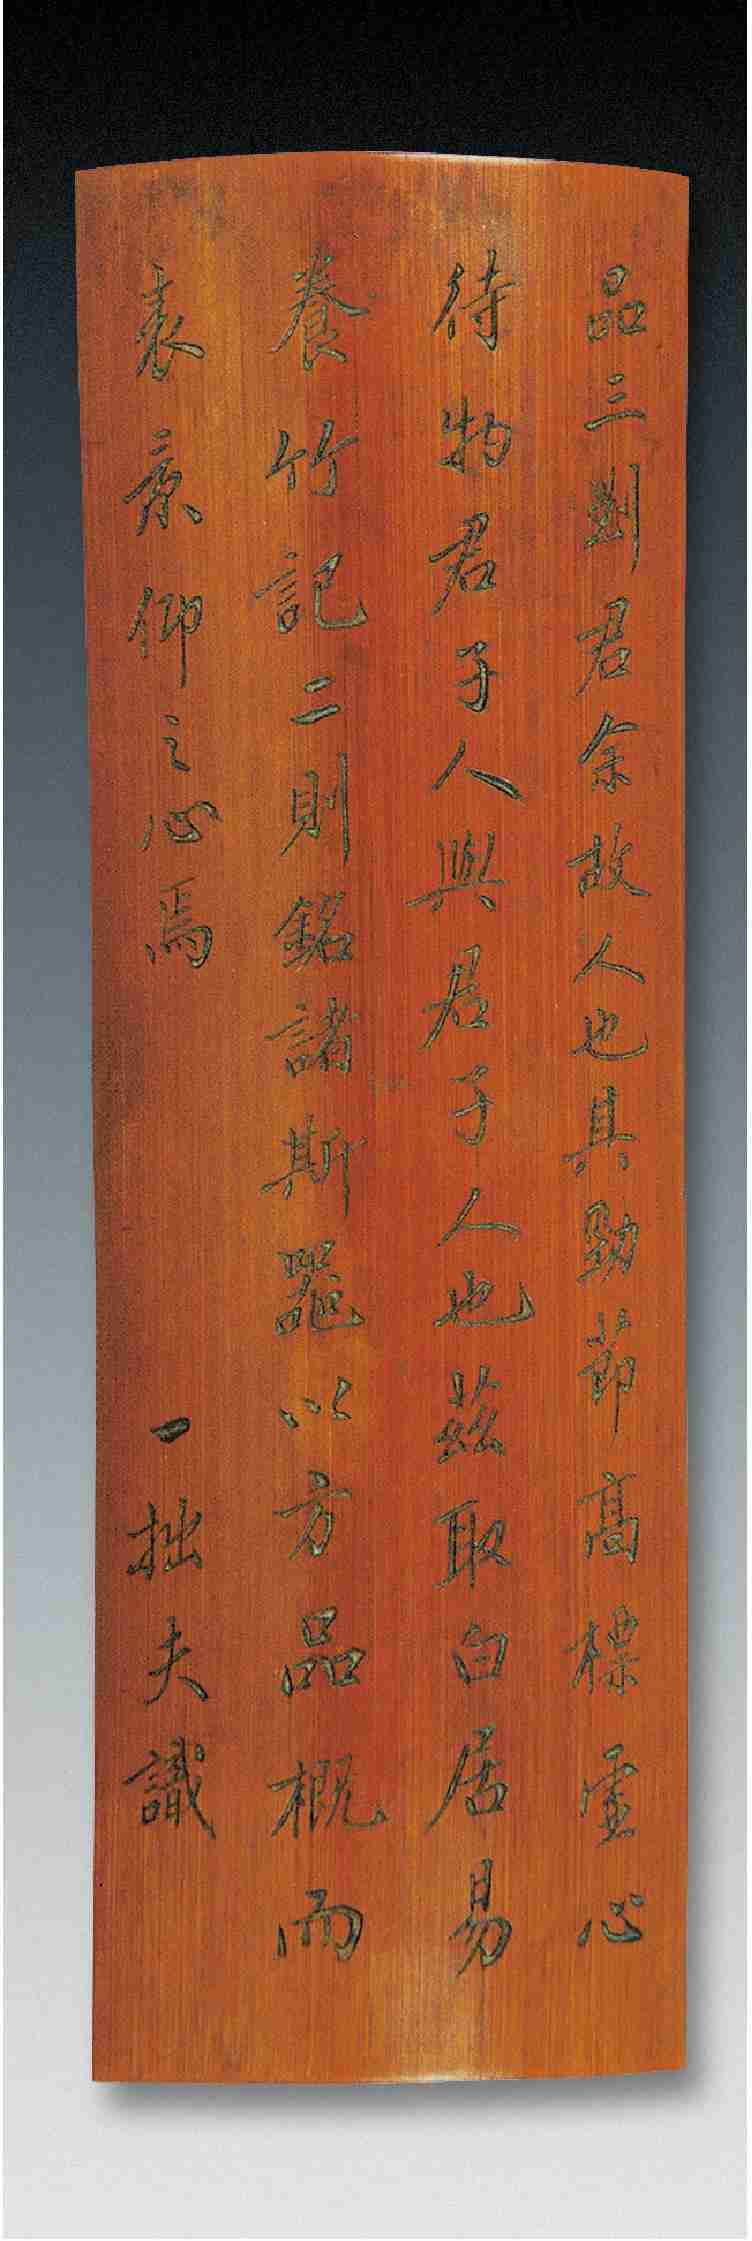 品三劉君余故人也具勁節高標虛心
待物君子人與君子人也茲取白居易
養竹記二則銘諸斯器以方品概而
表景仰之心焉
一拙夫識